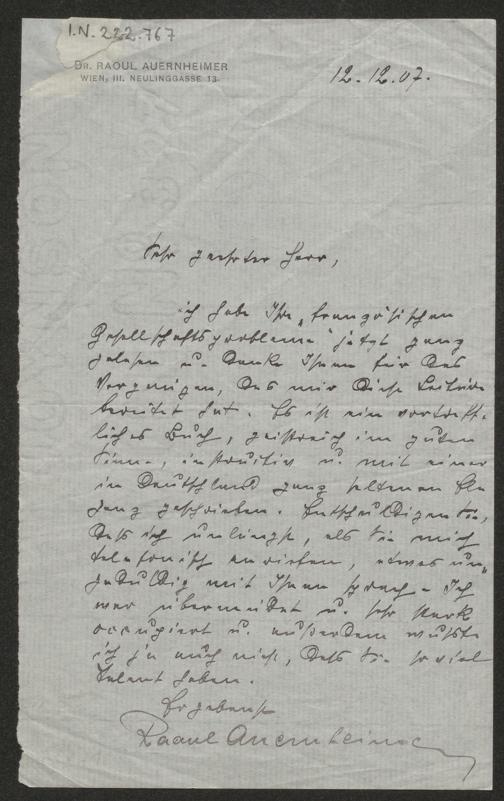 I.N. 222.767
DR. RAOUL AUERNHEIMER
WIEN, III. NEULINGGASSE 13.
12.12.07.
Sehr geehrter Herr,
ich habe Ihre „französischen
Gesellschaftsprobleme" jetzt ganz
gelesen u. danke Ihnen für das
Vergnügen, das mir diese Lektüre
bereitet hat. Es ist ein vortreff-
liches Buch, geistreich im guten
Sinne, instruktiv u. mit einer
in Deutschland ganz seltenen Ele
ganz geschrieben. Entschuldigen Sie,
dass ich unlängst, als Sie mich
telefonisch anriefen, etwas un-
geduldig mit Ihnen sprach. Ich
war übermüdet u. sehr stark
occupiert u. außerdem wußte
ich ja auch nicht, dass Sie so viel
Talent haben.
Ergebenst
Raoul Auernheimer